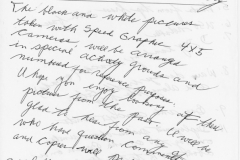 The black and white pictures
taken with Speed Graphic 4X5
Camera will be arranged
in special activity groups and
numbered for reference purposes.
I hope you enjoy looking at these
pictures from the past. We will be
glad to hear from any of
who have question comments
and copies will